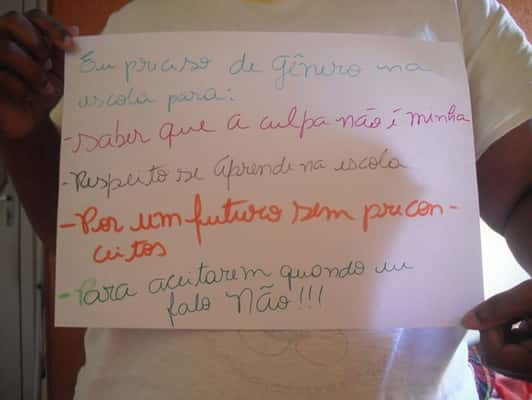 Eu priciso de gênero na
escola para:
- Saber que a culpa não é minha
- Respeito se aprende na escola
- Por um futuro sem precon-
ceitos
- Para aceitarem quando eu
falo Não!!!